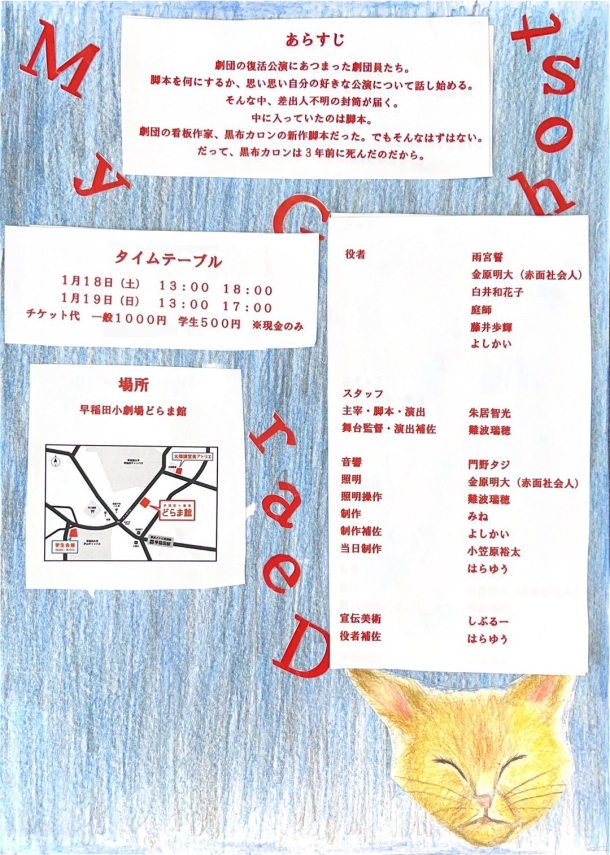 My
G
host
Dear
あらすじ
劇団の復活公演にあつまった劇団員たち。
脚本を何にするか、思い思い自分の好きな公演について話し始める。
そんな中、差出人不明の封筒が届く。
中に入っていたのは脚本。
劇団の看板作家、黒布カロンの新作脚本だった。でもそんなはずはない。
だって、黒布カロンは3年前に死んだのだから。
タイムテーブル
1月18日（土） 13：00 18：00
1月19日（日） 13：00 17：00
チケット代 一般1000円 学生500円 ※現金のみ
場所
早稲田小劇場どらま館
大隈講堂裏アトリエ
早稲田小劇場
どらま館
学生会館
早稲田駅
役者 雨宮誓
金原明大（赤面社会人）
白井和花子
庭師
藤井歩輝
よしかい
スタッフ
主宰・脚本・演出 朱居智光
舞台監督・演出補佐 難波瑞穂
音響 門野タジ
照明 金原明大（赤面社会人）
照明操作 難波瑞穂
制作 みね
制作補佐 よしかい
当日制作 小笠原裕太
はらゆう
宣伝美術 しぶるー
役者補佐 はらゆう